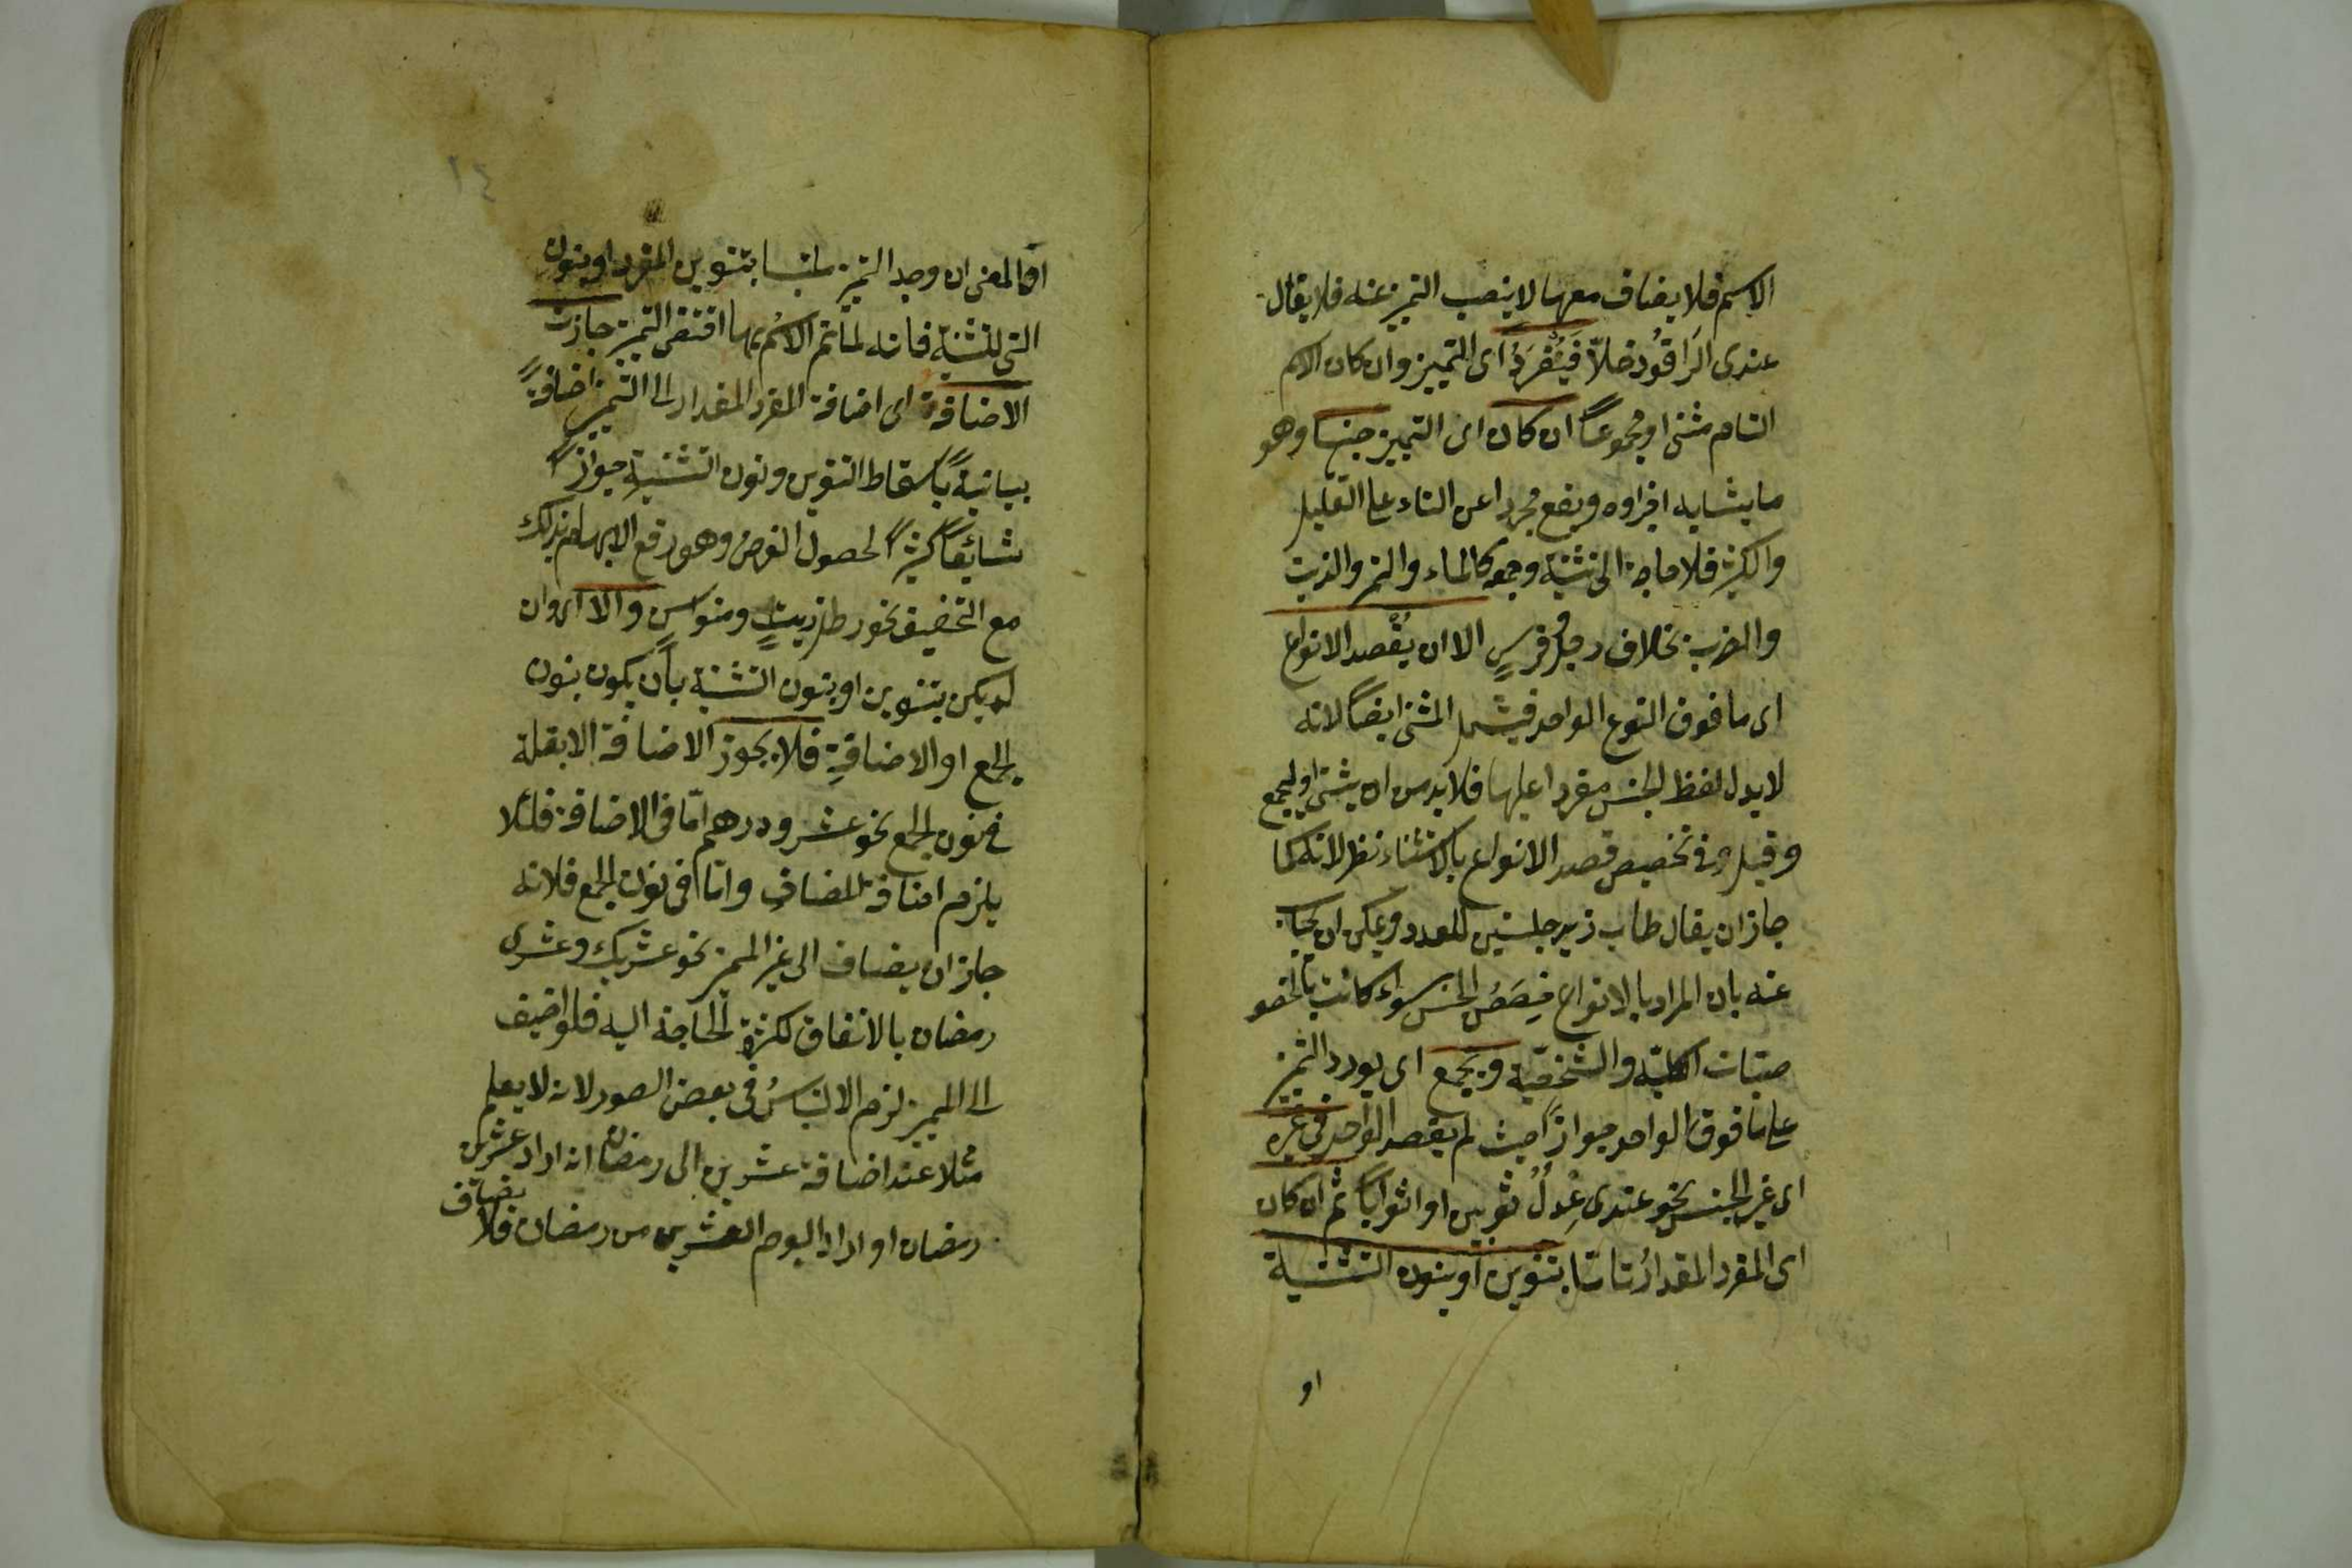 الاسم فلا يضاف معها لا ينصب التميز عنه فلا يقال
عندى الراقود خلاّ فيُفرَدُ اى التمييز وان كان الاسم
التام مثنى او مجموعاً ان كان اى التمييز جنسا وهو
ما يتشابه اجزاوه ويقع مجردا عن التاء على القليل
والكثير فلا حاجة الى تثنية وجمعه كالماء والتمر والزيت
والضرب بخلاف رجل وفرسٍ الا ان يُقصد الانواع
اى ما فوق النوع الواحد فيشمل المثنى ايضاً لانه
لا يدل لفظ الجنس مفردا عليها فلا بد من ان يثنى او يجمع
وقيل فى تخصيص قصد الانواع بالاستثناء نظر لانه كما
جاز ان يقال طاب زيد جلستين للعدد ويمكن ان يجاب
عنه بان المراد بالانواع حِصَصُ الجنس سواء كانت بالخصو
صيات الكليّة والشخصيّة ويجمع اى يورد التميز
على ما فوق الواحد جوازاً حيث لم يقصد الواحد فى غيره
اى غير الجنس نحو عندى عِدلٌ ثوبين او اثواباً ثم ان كان
اى المفرد المقدارُ تامّا بتنوين او بنون التثنية
او
او المعنى ان وجد التميز ملتبسا بتنوين المفرد او بنون
التى للتثنية فانه لما تم الاسم بهما اقتضى التميز جازت
الاضافة اى اضافة المفرد المقدار الى التميز اضافةً
بيانيةً باسقاط التنوين ونون التثنية جوازاً
شائعاً كثيراً لحصول الغرض وهو رفع الابهام بذلك
مع التخفيف نحو رطل زيتٍ ومنوا سمن والا اى وان
لم يكن بتنوين او بنون التثنية بأن يكون بنون
الجمع او الاضافةِ فلا يجوز الاضافة الا بقلة
فى نون الجمع نحو عشرو درهم امّا فى الاضافة فلئلا
يلزم اضافة المضاف واما فى نون الجمع فلانه
جاز ان يضاف الى غير المميز نحو عشريك وعشرى
رمضان بالاتفاق لكثرة الحاجة اليه فلو اضيف
الى المميز لزم الالتباسُ فى بعض الصور لانه لا يعلم
مثلا عند اضافة عشرين الى رمضان انه اراد عشرين
رمضان او اراد اليوم العشرين من رمضان فلا يضاف